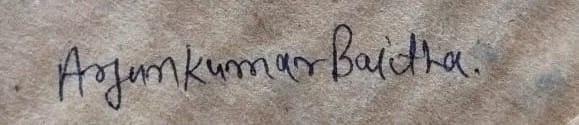 Arjun kumar Baitha.